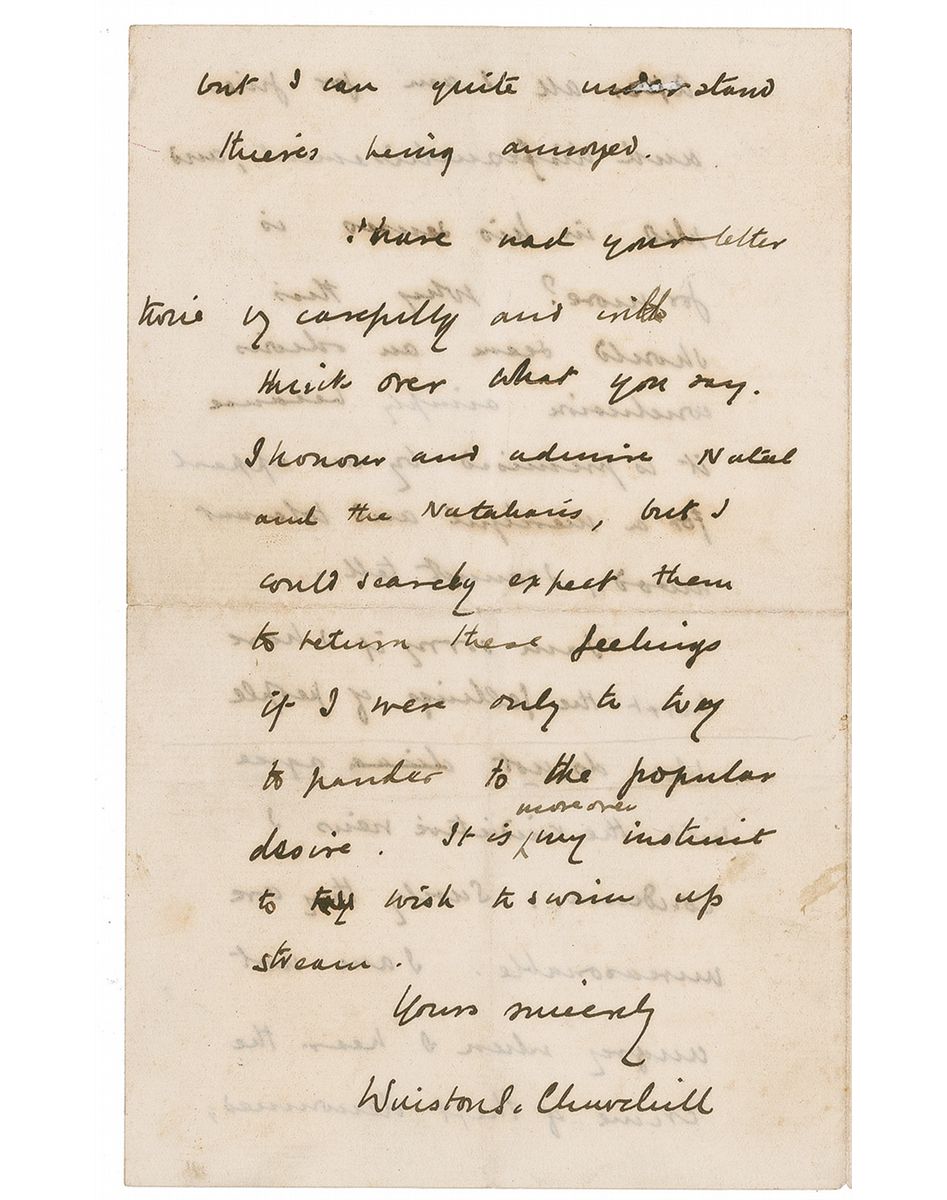 but I can quite understand
theirs being annoyed.
I have read your letter
very carefully and will
think over what you say.
I honour and admire Natal
and the Natalians, but I
could scarcely expect them
to return these feelings
if I were only to try
to pander to the popular
desire. It is moreover my instinct
to wish to swim up
stream.
Yours sincerely
Winston S. Churchill